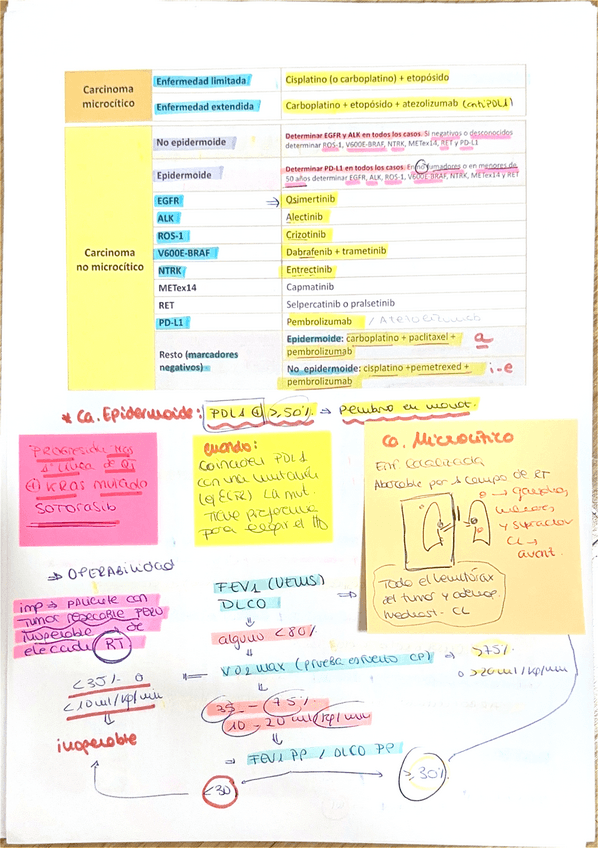 Carcinoma microcítico
Enfermedad limitada
Cisplatino (o carboplatino) + etopósido
Enfermedad extendida
Carboplatino + etopósido + atezolizumab (anti PDL1)
Carcinoma no microcítico
No epidermoide
Determinar EGFR y ALK en todos los casos. Si negativos o desconocidos
determinar ROS-1, V600E-BRAF, NTRK, METex14, RET y PD-L1
Epidermoide
Determinar PD-L1 en todos los casos. En no fumadores o en menores de
50 años determinar EGFR, ALK, ROS-1, V600E-BRAF, NTRK, METex14 y RET
EGFR
⇒ Osimertinib
ALK
Alectinib
ROS-1
Crizotinib
V600E-BRAF
Dabrafenib + trametinib
NTRK
Entrectinib
METex14
Capmatinib
RET
Selpercatinib o pralsetinib
PD-L1
Pembrolizumab / Atezolizumab
Resto (marcadores negativos)
Epidermoide: carboplatino + paclitaxel +
pembrolizumab
a
No epidermoide: cisplatino +pemetrexed +
pembrolizumab
i-e
* Ca. Epidermoide: PDL1 ⊕ ≥50% → pembro en monot.
PROGRESIÓN tras
1ª línea de QT
⊕ KRAS mutado
SOTORASIB
cuando:
Coinciden PDL1
con una mutación
(ej EGFR) La mut.
Tiene preferencia
para elegir el tto
Ca. Microcítico
Enf Localizada
Abarcable por 1 campo de RT
→ ganglios
y supraclav
CL →
Todo el hemitórax
del tumor y adenop.
mediast. CL
⇒ OPERABILIDAD
imp → paciente con
tumor resecable pero
inoperable → de
elección RT
FEV1 (VEMS) ⇒
DLCO
⇓
alguno <80%
⇓
VO2 MAX (prueba esfuerzo CP) → >75%
o >20ml/kg/min
<35% o
<10ml/kg/min
⇓
inoperable
35 - 75%
10 - 20 ml/kg/min
⇓
⇒ FEV1 PP / DLCO PP
<30
≥30%